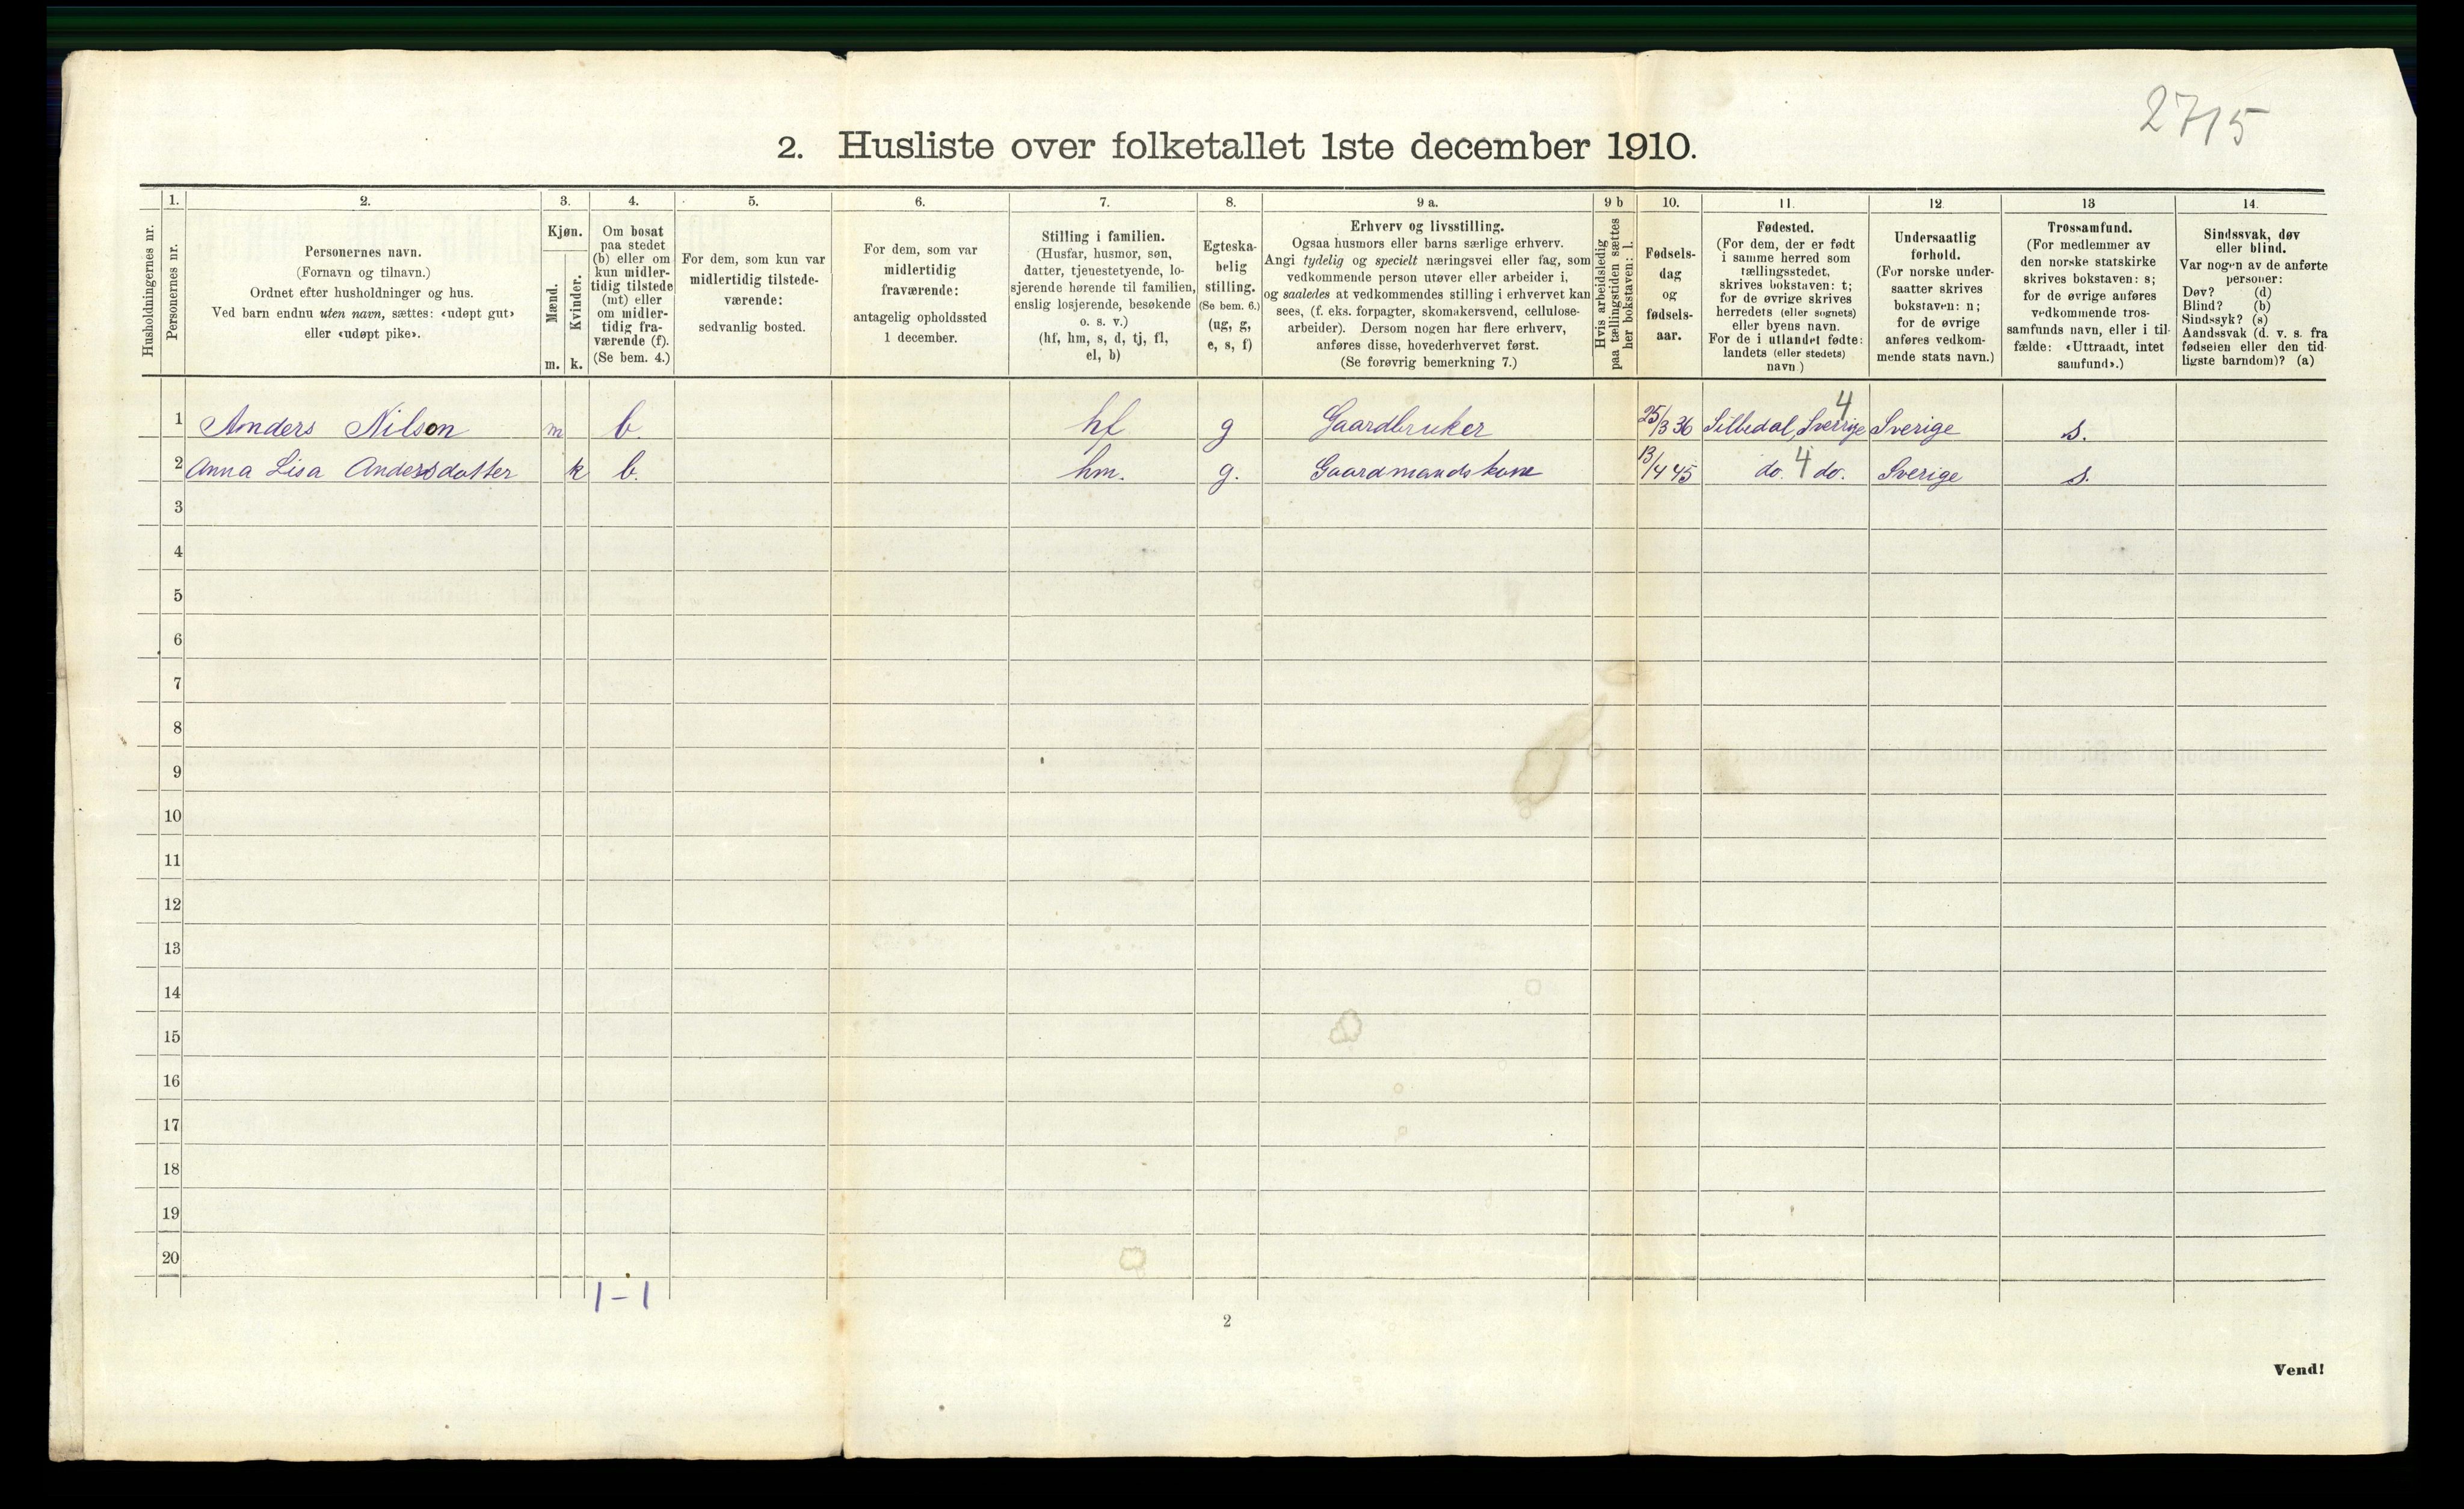 2715
2. Husliste over folketallet 1ste december 1910.
Husholdningernes nr.
1.
Personernes nr.
2.
Personernes navn.
(Fornavn og tilnavn.)
Ordnet efter husholdninger og hus.
Ved barn endnu uten navn, sættes: «udøpt gut»
eller «udøpt pike».
3.
Kjøn.
Mænd.
m.
Kvinder.
k.
4.
Om bosat
paa stedet
(b) eller om
kun midler-
tidig tilstede
(mt) eller
om midler-
tidig fra-
værende (f).
(Se bem. 4.)
5.
For dem, som kun var
midlertidig tilstede-
værende:
sedvanlig bosted.
6.
For dem, som var
midlertidig
fraværende:
antagelig opholdssted
1 december.
7.
Stilling i familien.
(Husfar, husmor, søn,
datter, tjenestetyende, lo-
sjerende hørende til familien,
enslig losjerende, besøkende
o. s. v.)
(hf, hm, s, d, tj, fl,
el, b)
8.
Egteska-
belig
stilling.
(Se bem. 6.)
(ug, g,
e, s, f)
9 a.
Erhverv og livsstilling.
Ogsaa husmors eller barns særlige erhverv.
Angi tydelig og specielt næringsvei eller fag, som
vedkommende person utøver eller arbeider i,
og saaledes at vedkommendes stilling i erhvervet kan
sees, (f. eks. forpagter, skomakersvend, cellulose-
arbeider). Dersom nogen har flere erhverv,
anføres disse, hovederhvervet først.
(Se forøvrig bemerkning 7.)
9 b
Hvis arbeidsledig
paa tællingstiden sættes
her bokstaven: l.
10.
Fødsels-
dag
og
fødsels-
aar.
11.
Fødested.
(For dem, der er født
i samme herred som
tællingsstedet,
skrives bokstaven: t;
for de øvrige skrives
herredets (eller sognets)
eller byens navn.
For de i utlandet fødte:
landets (eller stedets)
navn.)
12.
Undersaatlig
forhold.
(For norske under-
saatter skrives
bokstaven: n;
for de øvrige
anføres vedkom-
mende stats navn.)
13
Trossamfund.
(For medlemmer av
den norske statskirke
skrives bokstaven: s;
for de øvrige anføres
vedkommende tros-
samfunds navn, eller i til-
fælde: «Uttraadt, intet
samfund».)
14.
Sindssvak, døv
eller blind.
Var nogen av de anførte
personer:
Døv? (d)
Blind? (b)
Sindssyk? (s)
Aandssvak (d. v. s. fra
fødselen eller den tid-
ligste barndom)? (a)
1 Anders Nilson m b. hf g Gaardbruker 25/3 36 Silbodal, Sverrige 4 Sverige s.
2 Anna Lisa Andersdatter k b. hm. g. Gaardmandskone 13/4 45 do. 4 do. Sverige s.
3
4
5
6
7
8
9
10
11
12
13
14
15
16
17
18
19
20
1 - 1
2
Vend!